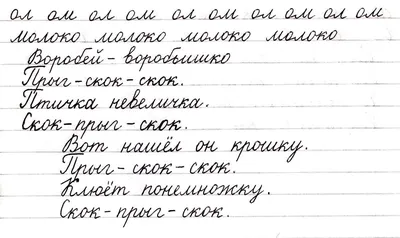 ол ом ол ом ол ом ол ом ол ом
молоко молоко молоко молоко
Воробей - воробьишко
Прыг - скок - скок.
Птичка невеличка.
Скок - прыг - скок.
Вот нашёл он крошку.
Прыг - скок - скок.
Клюёт понемножку.
Скок - прыг - скок.